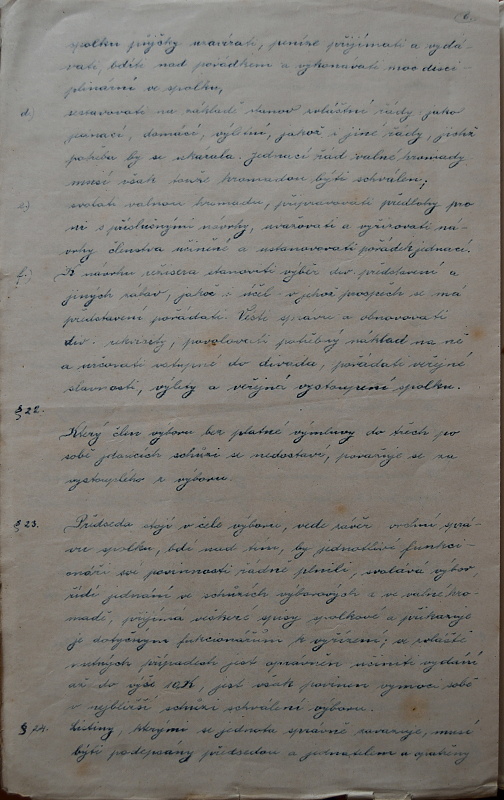 6.
spolku půjčky uzavírati, peníze přijímati a vydá-
vati, bdíti nad pořádkem a vykonávati moc disci-
plinární ve spolku,
d.) sestavovati na základě stanov zvláštní řády: jako
jednací, domácí, výletní, jakož i jiné řády, jichž
potřeba by se ukázala. Jednací řád valné hromady
musí však touže hromadou býti schválen;
e.) svolati valnou hromadu, připravovati předlohy pro
ni s příslušnými návrhy, uvažovati a vyřizovati ná-
vrhy členstva učiněné a ustanovovati pořádek jednací.
f.) K návrhu režiséra stanoviti výběr div. představení a
jiných zábav, jakož i účel v jehož prospěch se má
představení pořádati. Vésti správu a obnovovati
div. rekvisity, povolovati potřebný náklad na ně
a určovati vstupné do divadla, pořádati veřejné
slavnosti, výlety a veřejná vystoupení spolku.
§ 22.
Který člen výboru bez platné výmluvy do třech po
sobě jdoucích schůzí se nedostaví, považuje se za
vystouplého z výboru.
§ 23. Předseda stojí v čele výboru, vede závěr vrchní sprá-
vu spolku, bdí nad tím, by jednotliví funkci-
onáři své povinnosti řádně plnili, svolává výbor,
řídí jednání ve schůzích výborových a ve valné hro-
madě, přijímá veškeré spisy spolkové a přikazuje
je dotyčným funkcionářům k vyřízení; ve zvláště
nutných případech jest oprávněn učiniti vydání
až do výše 10 K, jest však povinen vymoci sobě
v nejbližší schůzi schválení výboru.
§ 24. Listiny, kterými se jednota správně zavazuje, musí
býti podepsány předsedou a jednatelem a opatřeny